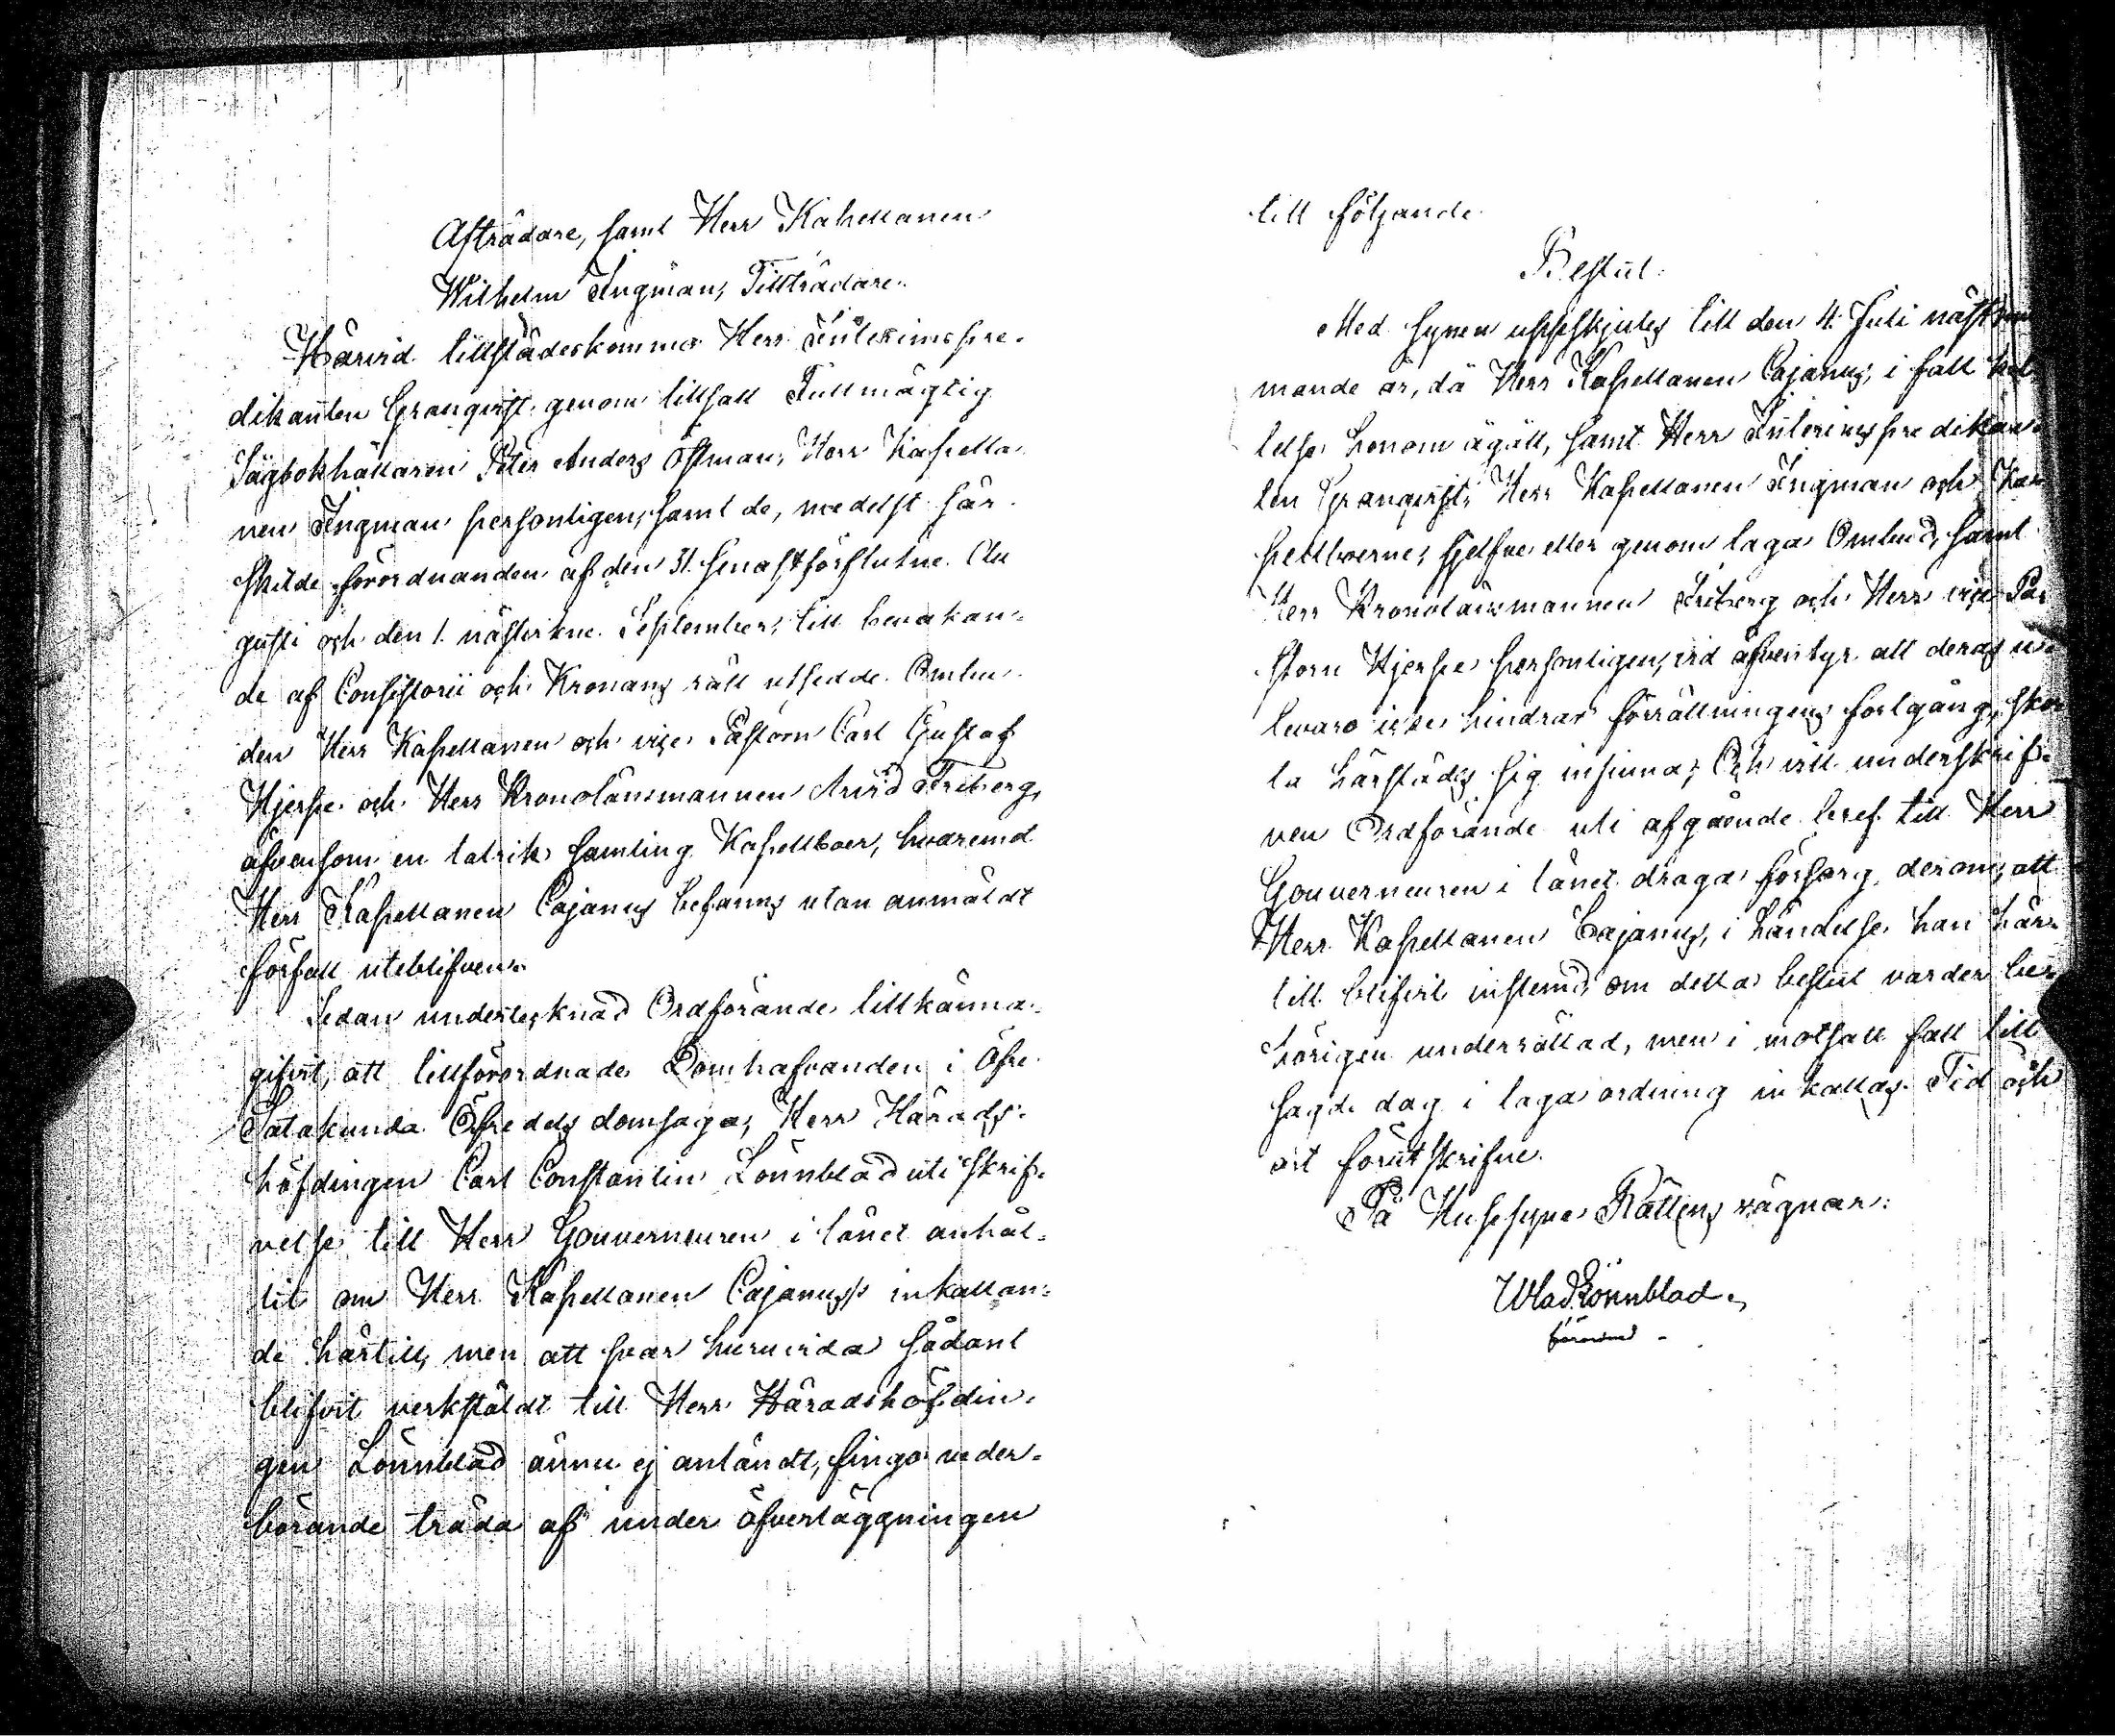 Afträdare, samt Herr Kapellanen
Wilhelm Ingman, Tillträdare.
Härvid tillstädeskommo Herr Interimspre-
dikanten Granqvist genom tillsatt Fullmägtig
Sågbokhållaren Peter Anders Östman, Herr Kapella-
nen Ingman personligen, samt de, medelst sär-
skilde förordnanden af den 31. senastförflutne Au-
gusti och den 1. nästvikne September, till bevakan-
de af Consistorii och Kronans rätt utsedde Ombu-
den Herr Kapellanen och vice Pastorn Carl Gustaf
Hjerpe och Herr Kronolänsmannen Arvid Friberg,
äfvensom en talrik samling Kapellboer, hvaremd
Herr Kapellanen Cajanus befanns utan anmäldt
förfall utebliven.
Sedan undertecknad Ordförande tillkänna-
gifvit, att tillförordnade Domhafvanden i Öfre
Satakunda Öfredels domsaga, Herr Härads-
höfdingen Carl Constantin Lönnblad uti skrif-
velse till Herr Gouverneuren i länet anhål-
lit om Herr Kapellanen Cajanus's inkallan-
de härtill, men att svar huruvida sådant
blifvit verkstäldt till Herr Häradshöfdin-
gen Lönnblad ännu ej anländt, fingo veder-
börande träda af under öfverläggningen
till följande
Beslut:
Med synen uppskjutes till den 4. Juli nästkom
mande år, då Herr Kapellanen Cajanus, i fall kal-
lelse honom ägått, samt Herr Interimspredikan-
ten Granqvist, Herr Kapellanen Ingman och Ka-
pellboerne, sjelfve eller genom laga Ombud, samt
Herr Kronolänsmannen Friberg och Herr vice Pa-
storn Hjerpe personligen, vid äfventyr att deras u-
tevaro icke hindrar förrättningens fortgång, sko-
la härstädes sig infinna; Och vill underskrif-
ven Ordförande uti afgående bref till Herr
Gouverneuren i länet draga försorg derom, att
Herr Kapellanen Cajanus, i händelse han här-
till blifvit instemd, om detta beslut varder be-
hörigen underrättad, men i motsatt fall till
sagde dag i laga ordning inkallas. Tid och
ort förutskrifne.
På Husesyns Rättens vägnar:
Wlad Lönnblad.
förordnad.